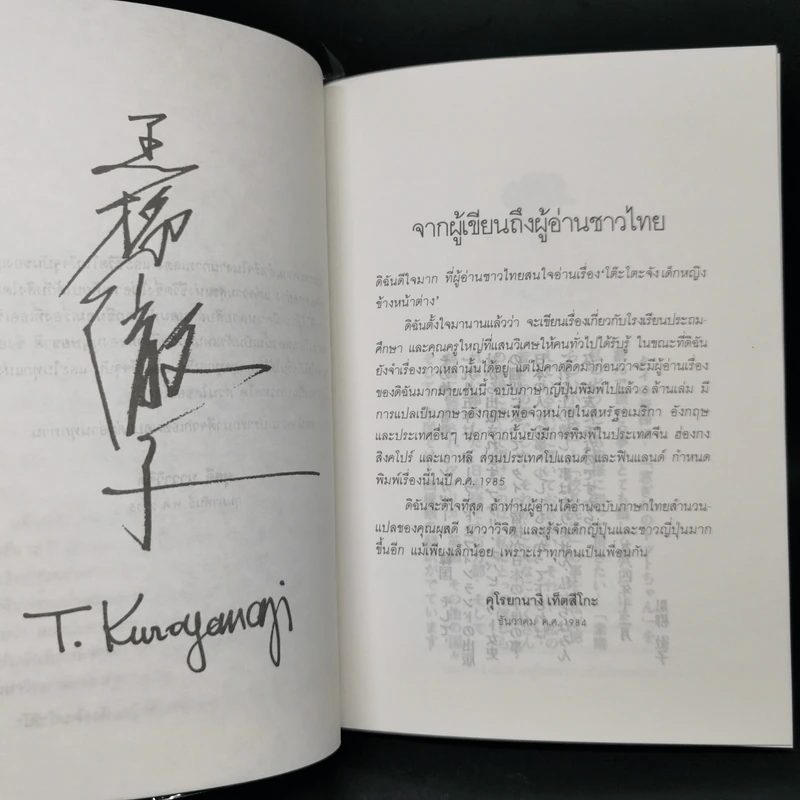 黒柳
徹
子
T. Kuroyanagi
จากผู้เขียนถึงผู้อ่านชาวไทย
ดิฉันดีใจมาก ที่ผู้อ่านชาวไทยสนใจอ่านเรื่อง‘โต๊ะโตะจัง เด็กหญิง
ข้างหน้าต่าง’
ดิฉันตั้งใจมานานแล้วว่า จะเขียนเรื่องเกี่ยวกับโรงเรียนประถม-
ศึกษา และคุณครูใหญ่ที่แสนวิเศษให้คนทั่วไปได้รับรู้ ในขณะที่ดิฉัน
ยังจำเรื่องราวเหล่านั้นได้อยู่ แต่ไม่คาดคิดมาก่อนว่าจะมีผู้อ่านเรื่อง
ของดิฉันมากมายเช่นนี้ ฉบับภาษาญี่ปุ่นพิมพ์ไปแล้ว 6 ล้านเล่ม มี
การแปลเป็นภาษาอังกฤษเพื่อจำหน่ายในสหรัฐอเมริกา อังกฤษ
และประเทศอื่นๆ นอกจากนั้นยังมีการพิมพ์ในประเทศจีน ฮ่องกง
สิงคโปร์ และเกาหลี ส่วนประเทศโปแลนด์ และฟินแลนด์ กำหนด
พิมพ์เรื่องนี้ในปี ค.ศ. 1985
ดิฉันจะดีใจที่สุด ถ้าท่านผู้อ่านได้อ่านฉบับภาษาไทยสำนวน-
แปลของคุณผุสดี นาวาวิจิต และรู้จักเด็กญี่ปุ่นและชาวญี่ปุ่นมาก
ขึ้นอีก แม้เพียงเล็กน้อย เพราะเราทุกคนเป็นเพื่อนกัน
คุโรยานางิ เท็ตสึโกะ
ธันวาคม ค.ศ. 1984